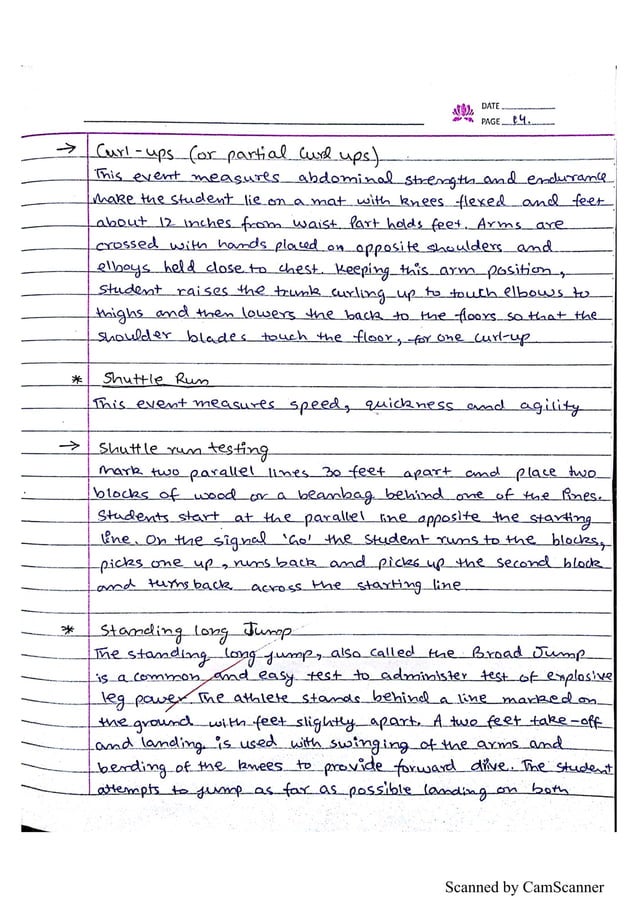 DATE
PAGE 14.
→ Curl-ups (or partial Curl ups)
This event measures abdominal strength and endurance
Make the student lie on a mat with knees flexed and feet
about 12 inches from waist. Part holds feet. Arms are
crossed with hands placed on opposite shoulders and
elboys held close to chest. Keeping this arm position,
student raises the trunk curling up to touch elbows to
thighs and then lowers the back to the floors so that the
shoulder blades touch the floor, for one curl-up
* Shuttle Run
This event measures speed, quickness and agility
→ Shuttle run testing
Mark two parallel lines 30 feet apart and place two
blocks of wood or a beanbag behind one of the lines.
Students start at the parallel line opposite the starting
line. On the signal 'Go' the student runs to the blocks,
picks one up, runs back and picks up the second block
and turns back across the starting line
* Standing long Jump
The standing long jump, also called the Broad Jump
is a common and easy test to administer test of explosive
leg power. The athlete stands behind a line marked on
the ground with feet slightly apart. A two feet take-off
and landing is used with swinging of the arms and
bending of the knees to provide forward drive. The student
attempts to jump as far as possible landing on both
Scanned by CamScanner